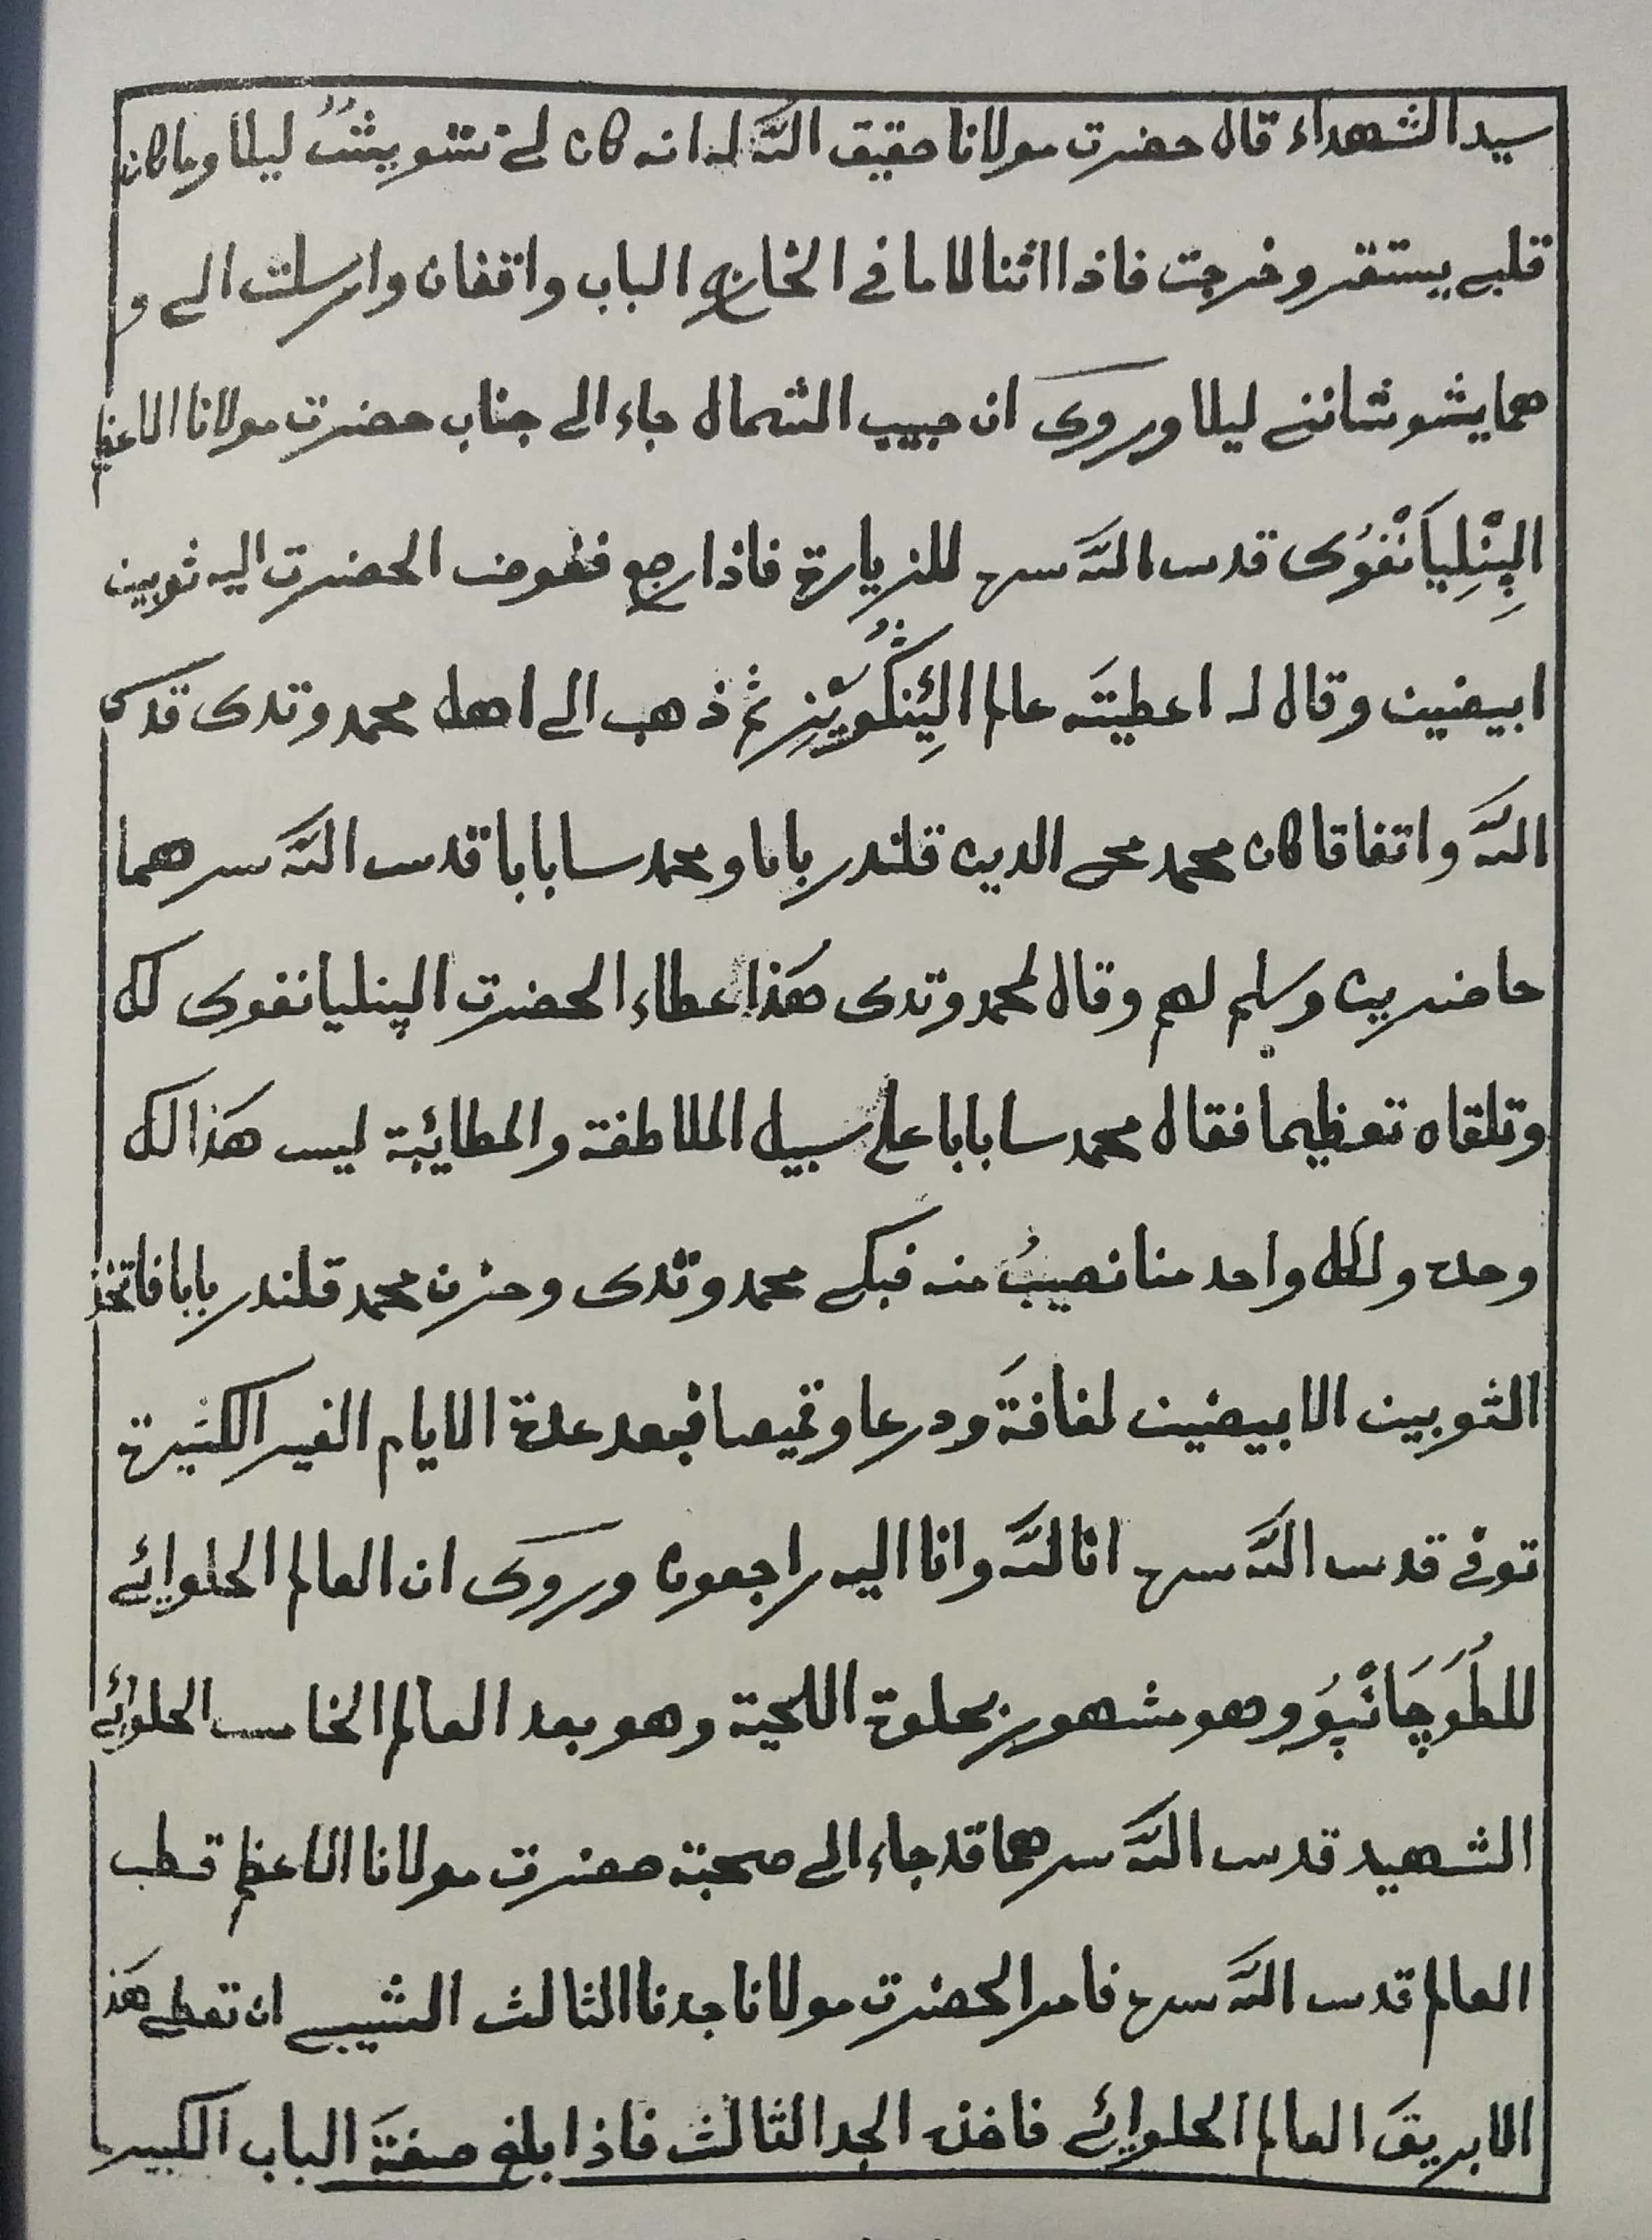 سيد الشهداء قال حضرت مولانا حقيق الله له انه كان لے تشويشٌ ليلا وما كان
قلبے يستقر وخرجت فاذا اثنا للاما في الخارج الباب واقفان وارسلت الے و
هما يشوشاننے ليلا وروى ان حبيب الشمال جاء الے جناب حضرت مولانا الاعظم
الپِنْلِيَانْفُوى قدس الله سره للزيارة فاذا رجع ففوض الحضرت اليه ثوبين
ابيضين وقال له اعطيتَه عالم ثم ذهب الے اهل محمد وتدى قدس
الله واتفاقا كان محمد محے الدين قلندر بابا ومحمد سابابا قدس الله سرهما
حاضرين وسلم لهم وقال لمحمد وتدى هَذا عطاء الحضرت الپنليانفوى لك
وتلقاه تعظيما فقال محمد سابابا علے سبيل الملاطفة والمطائبة ليس هَذا لك
وحده ولكل واحد منا نصيبُ منه فبكے محمد وتدى وحزن محمد قلندر بابا فاتخذ
الثوبين الابيضين لفافةَ ودرعا وقميصا فبعد عدة الايام الغير الكثيرة
توفے قدس الله سره انا لله وانا اليه راجعون وروى ان العالم الحلوائے
للطُوَچَانْپُو وهو مشهور بحلوة اللحية وهو بعد العالم الخامس الحلوائے
الشهيد قدس الله سرهما قد جاء الے صحبة حضرت مولانا الاعظم قطب
العالم قدس الله سره فامر الحضرت مولانا جدنا الثالث الشيبے ان تعطے هَذ
الابريقَ العالم الحلوائے فاخذه الجد الثالث فاذا بلغ صفةَ الباب الكبير